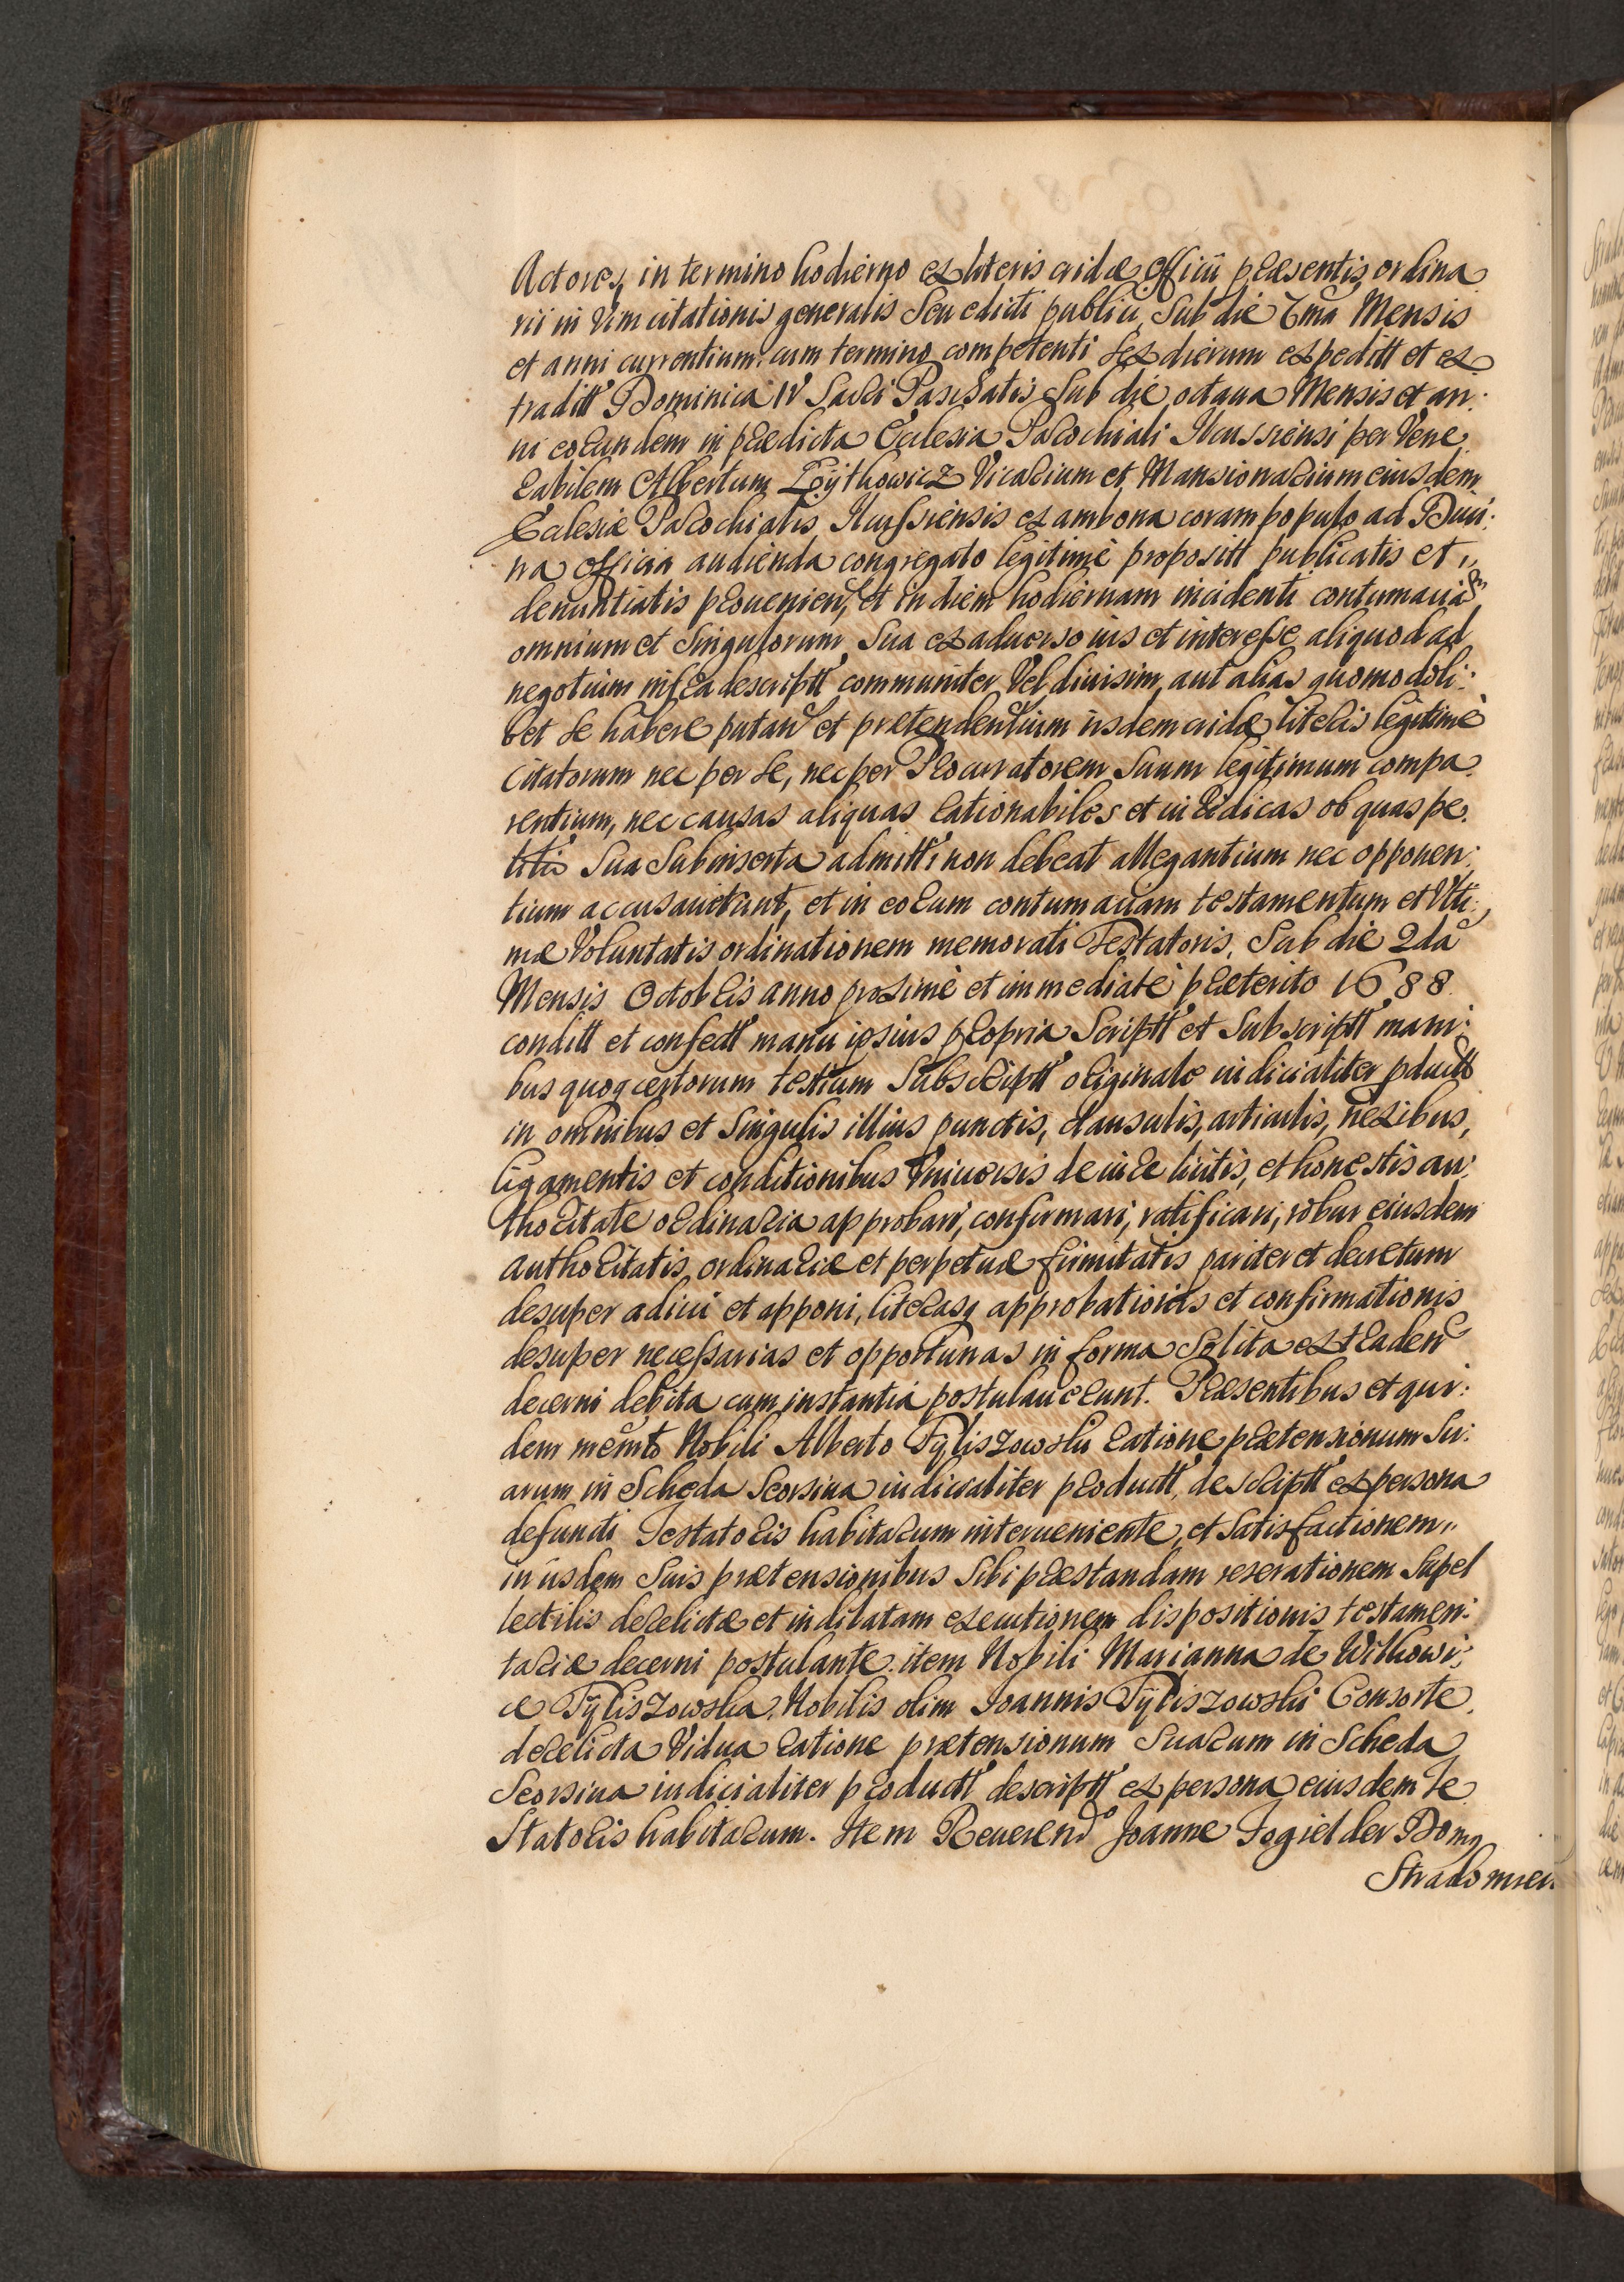 Actores, in termino hodierno ex literis cridæ officii præsentis ordina
rii in Vim citationis generalis Seu edicti publici, Sub die 7ma Mensis
et anni currentium, cum termino competenti Sex dierum expeditt et ex
traditt Dominica IV Sacri Paschatis Sub die octaua Mensis et an:
ni eorundem in prædicta Ecclesia Parochiali Ilcussiensi per Vene
rabilem Albertum Vicarium et Mansionarium eiusdem
Ecclesiæ Parochialis Ilcussiensis ex ambona coram populo ad Diui:
na officia audienda congregato legitimè propositt publicatis et
denuntiatis prouenien, et in diem hodiernam incidenti contumaciam
omnium et Singulorum Sua ex aduerso ius et interesse aliquod ad
negotium infra descriptt communiter Vel diuisim aut alias quomodoli:
bet Se habere putan et prætendentium iisdem cridæ literis legitimè
citatorum nec per Se, nec per Procuratorem Suum legitimum compa
rentium, nec causas aliquas rationabiles et iuridicas ob quas pe
titis Sua Subinserta admitti non debeat allegantium nec opponen:
tium accusauerunt, et in eorum contumaciam testamentum et Vlti:
mæ Voluntatis ordinationem memorati Testatoris, Sub die 2da
Mensis Octobris anno proximè et immediatè præterito 1688
conditt et confectt manu ipsius propria Scriptt et Subscriptt mani:
bus quoq certorum testium Subscriptt originale iudicialiter pductt
in omnibus et Singulis illius punctis, clausulis, articulis, nexibus,
ligamentis et conditionibus Vniuersis de iure licitis, et honestis au:
thoritate ordinaria approbari, confirmari, ratificari, robur eiusdem
authoritatis ordinariæ et perpetuæ firmitatis pariter et decretum
desuper adiici et apponi, literasq approbationis et confirmationis
desuper necessarias et opportunas in forma Solita extraden
decerni debita cum instantia postulauerunt. Præsentibus et qui:
dem memto Nobili Alberto Tyliszowski ratione prætensionum Su:
arum in Scheda Seorsiua iudicialiter productt, descriptt ex persona
defuncti Testatoris habitarum interueniente, et Satisfactionem
in iisdem Suis prætensionibus Sibi præstandam reserationem Supel
lectilis derelictæ et indilatam executionem dispositionis testamen:
tariæ decerni postulante. item Nobili Marianna de Withowi:
ce Tyliszowska, Nobilis olim Joannis Tyliszowski Consorte
derelicta Vidua ratione prætensionum Suarum in Scheda
Seorsiua iudicialiter productt descriptt ex persona eiusdem Te
Statoris habitarum. Item Reuerendo Joanne Fogielder Domus
Stradomien